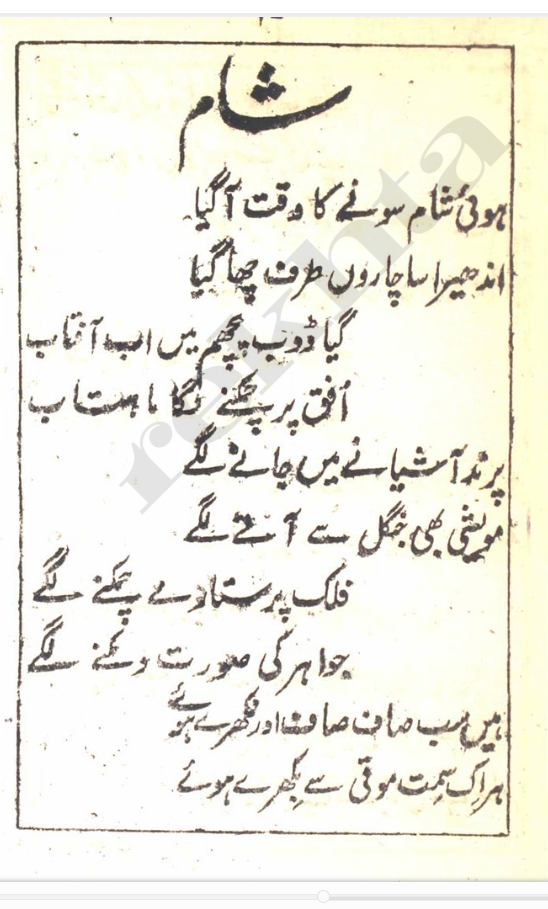 شام
ہوئی شام سونے کا وقت آ گیا
اندھیرا سا چاروں طرف چھا گیا
گیا ڈوب پچھم میں اب آفتاب
اُفق پر چمکنے لگا ماہتاب
پرند آشیانے میں جانے لگے
مویشی بھی جنگل سے آنے لگے
فلک پر ستارے چمکنے لگے
جواہر کی صورت دمکنے لگے
ہیں سب صاف صاف اور نکھرے ہوئے
ہر اِک سِمت موتی سے بکھرے ہوئے
rekhta